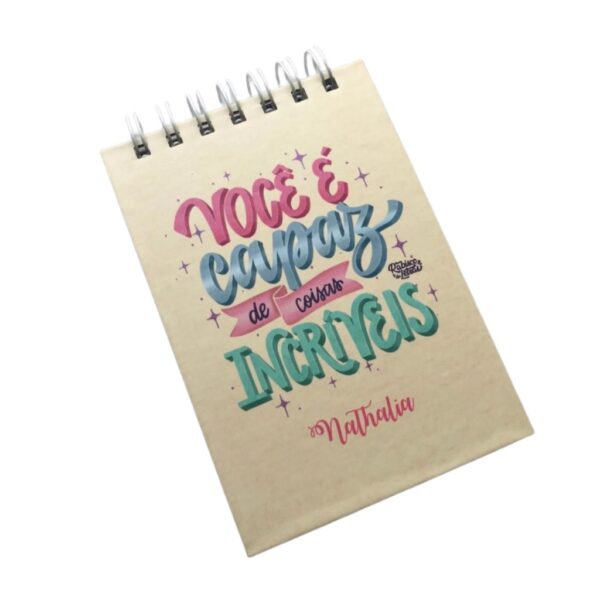 VOCÊ É
capaz
de coisas
INCRÍVEIS
Nathalia